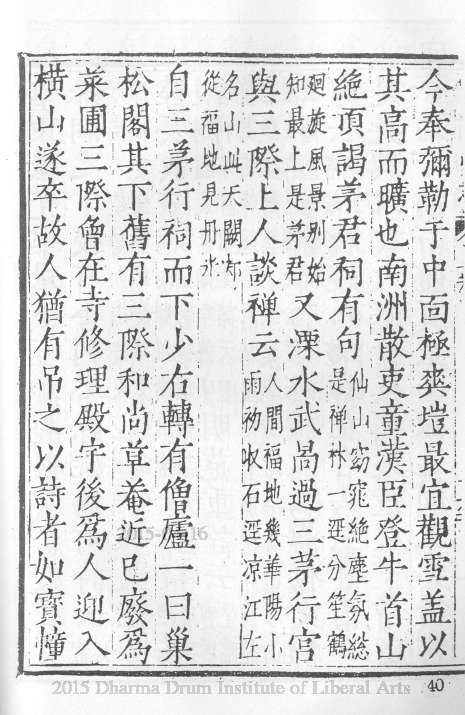 今奉彌勒于中面極爽塏最宜觀雪盖以
其高而曠也南洲散吏童漢臣登牛首山
絶頂謁茅君祠有句
仙山窈窕絶塵氛總
是禅林一逕分笙鶴
廻旋風景别始
知最上是茅君
又溧水武過三茅行宫
與三際上人談禅云
人間福地幾華陽小
雨初收石逕凉江左
名山此天闕却
從福地見
自三茅行祠而下少右轉有僧廬一曰巢
松閣其下舊有三際和尚草菴近已廢為
菜圃三際曾在寺修理殿宇後為人迎入
横山遂卒故人猶有吊之以詩者如寳幢
2015 Dharma Drum Institute of Liberal Arts
40